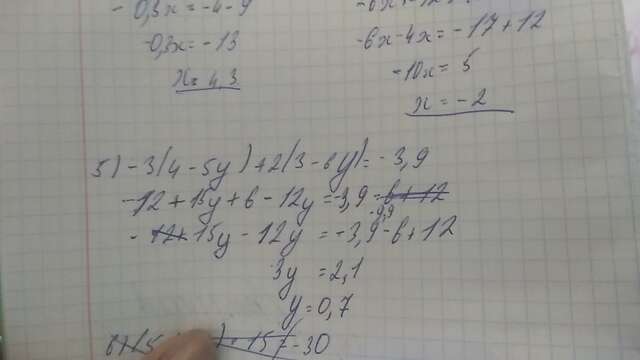 - 0,3x = -4-9
-0,3x = -13
x = 4,3
-6x-4x = -17+12
-10x = 5
x = -2
5) -3(4-5y)+2(3-6y) = -3,9
-12+15y+6-12y = -3,9 -6+12
-9,9
- 12+ 15y-12y = -3,9-6+12
3y = 2,1
y = 0,7
-30